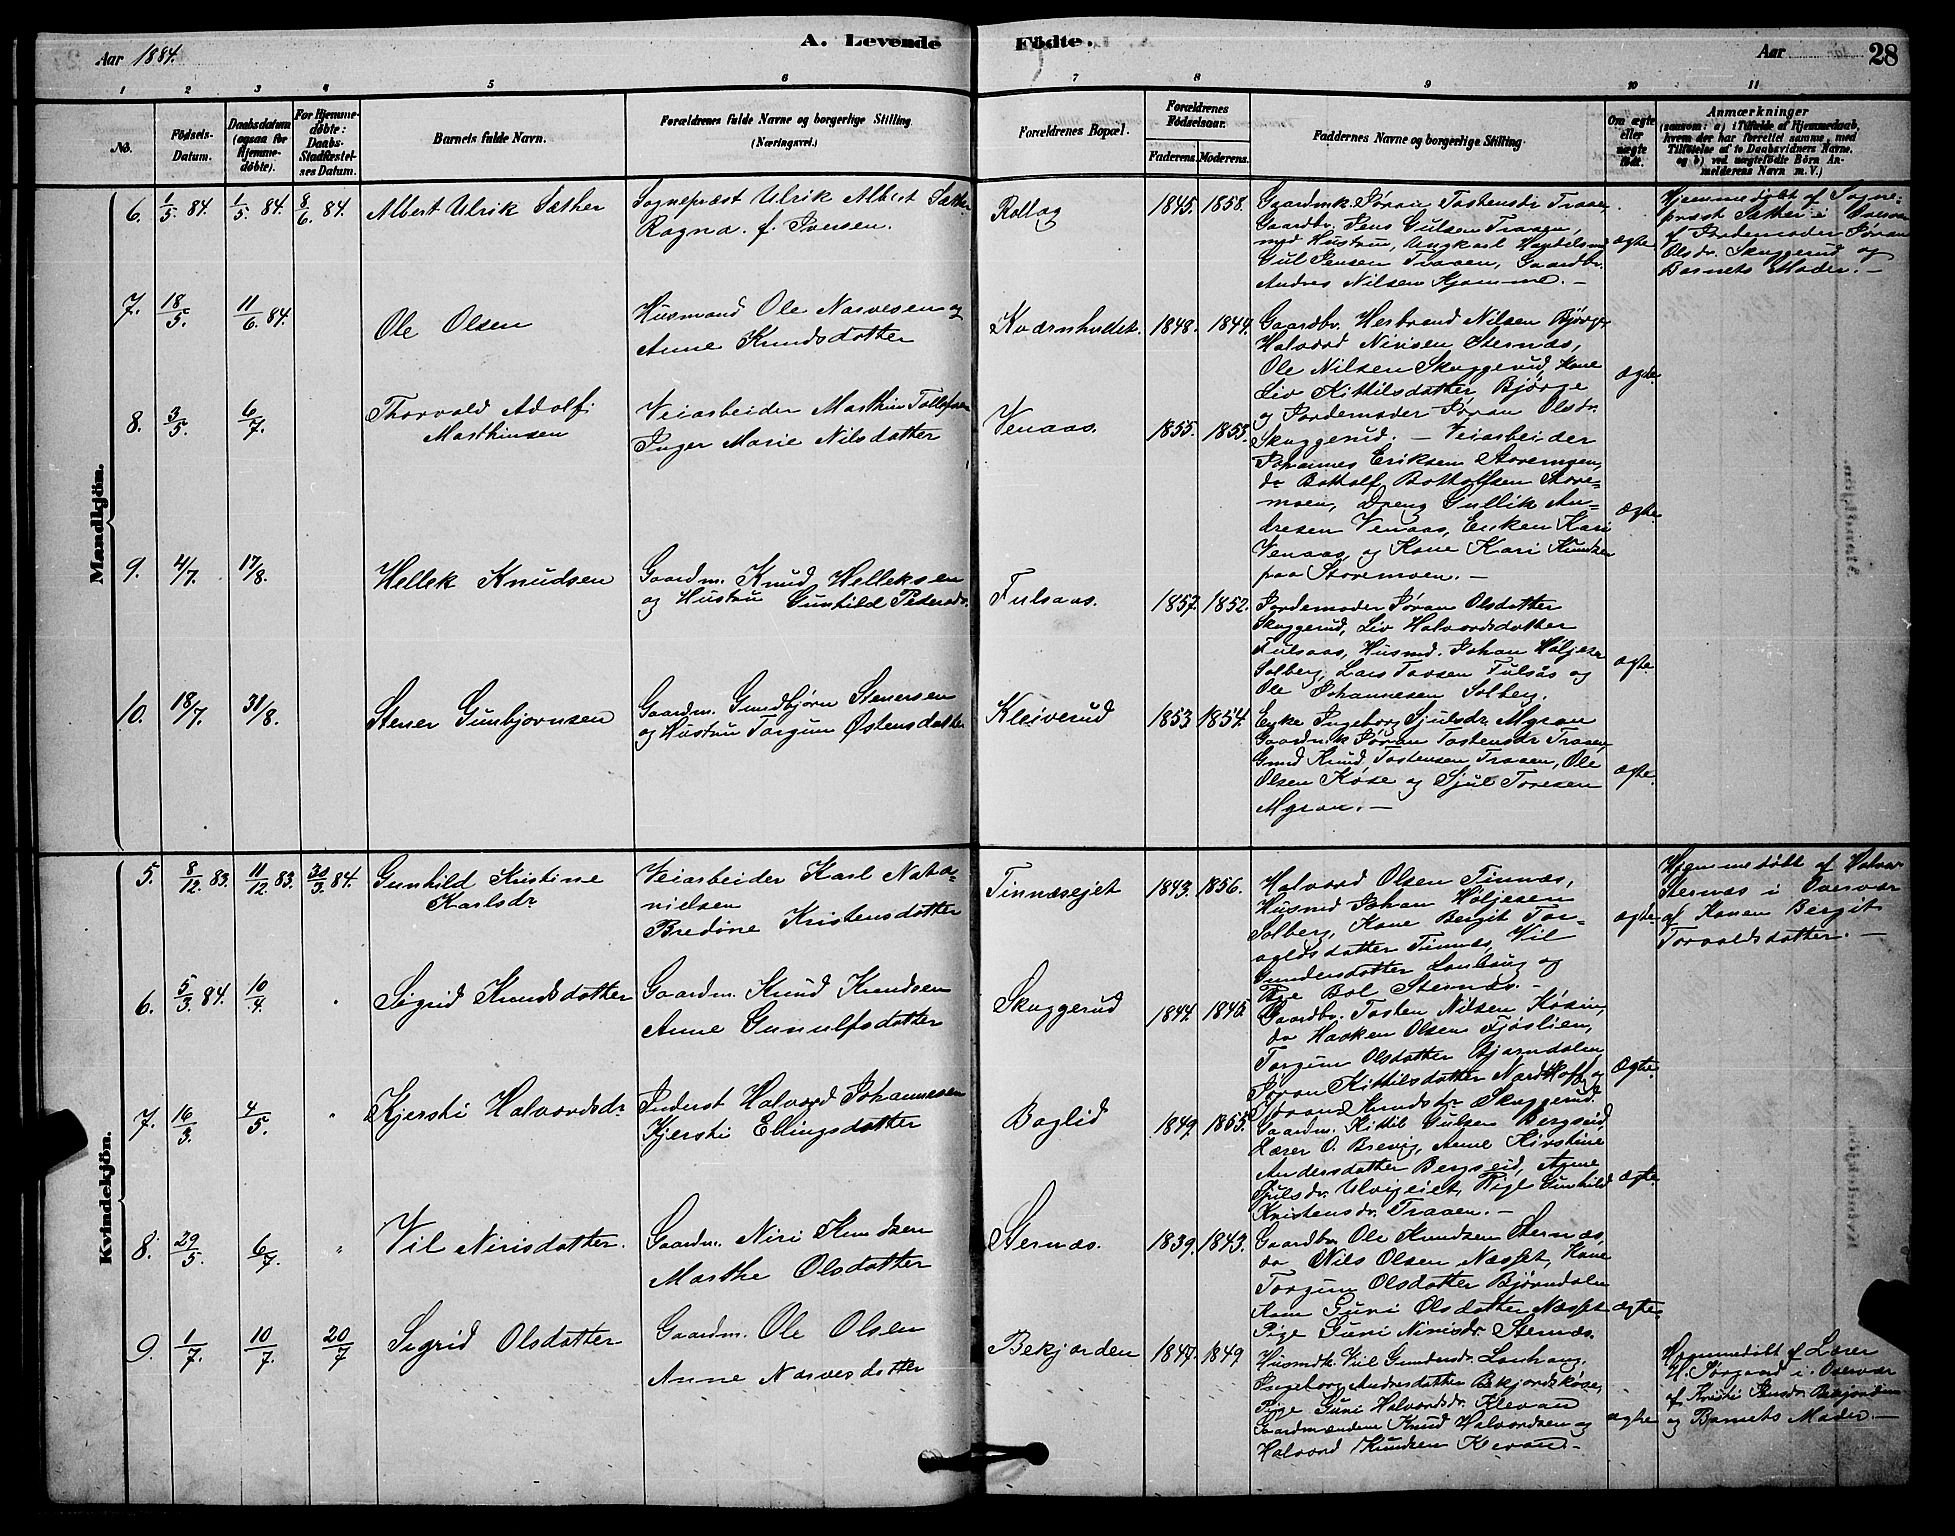 Aar 1884.
A. Levende
Födte.
Aar
28
1
2
3
4
5
6
7
8
9
10
11
No.
Födsels-
Datum.
Daabsdatum
(ogsaa for
Hjemme-
döbte).
For Hjemme-
döbte:
Daabs-
Stadfæstel-
ses Datum.
Barnets fulde Navn.
Forældrenes fulde Navne og borgerlige Stilling
(Næringsvei.)
Forældrenes Bopæl.
Forældrenes
Födselsaar.
Faderens.
Moderens.
Faddernes Navne og borgerlige Stilling
Om ægte
eller
uægte
födt.
Anmærkninger
(saasom: a) i Tilfælde af Hjemmedaab,
hvem der har forrettet samme, med
Tilföielse af to Daabsvidners Navne,
og b) ved uægtefödte Börn An-
melderens Navn m. V.)
Mandkjön.
6. 1/5 84. 1/5 84. 8/6 84.
Albert Ulrik Sæther
Sognepræst Ulrik Albert Sæther
Ragna f. Iversen.
Rollag
1845. 1858.
Gaardmk. Jøran Tostensdr Traaen,
Gaardbr. Jens Gulsen Traaen,
med Hustru, Ungkarl Handelsmd
Gul Jensen Traaen, Gaardbr.
Andres Nilsen Hjamme. –
ægte
Hjemmedøbt af Sogne-
præst Sæther i Overvær
af Jordemoder Jøran
Olsdr. Skuggerud og
Barnets Moder. –
7. 18/5. 11/6 84.
Ole Olsen
Husmand Ole Narvesen og
Anne Knudsdatter
Kværnhvdet.
1848. 1844.
Gaardbr. Herbrand Nilsen Bjørge
Halvord Nirisen Sternæs,
Ole Nilsen Skuggerud, Kone
Liv Kittilsdatter Bjørge
og Jordemoder Jøran Olsdr.
Skuggerud. –
ægte
8. 3/5. 6/7.
Thorvald Adolf
Marthinsen
Veiarbeider Marthin Tollefsen
Inger Marie Nilsdatter
Venaas.
1855. 1855.
Veiarbeider
Johannes Eriksen Storemoen,
do Bottolf Bottolfsen Store-
moen, Dreng Gullik An-
dresen Venaas, Enken Kari
Venaas, og Kone Kari Knudsen
paa Storemoen. –
ægte
9. 4/7. 17/8.
Hellek Knudsen
Gaardm. Knud Helleksen
og Hustru Gunhild Pedersdr.
Fulsaas.
1857. 1852.
Jordemoder Jøran Olsdatter
Skuggerud, Liv Halvordsdatter
Fulsaas, Husmd. Johan Høljesen
Solberg, Lars Tovsen Fulsås og
Ole Johannesen Solberg.
ægte
10. 18/7. 31/8.
Stener Gunbjørnsen
Gaardm. Gundbjørn Stenersen
og Hustru Torgun Østensdatter
Kleiverud
1853 1854.
Enke Ingeborg Sjulsdr. Myran
Gaardmk Jøran Tostensdr Traaen,
Gmd Knud Tostensen Traaen, Ole
Olsen Køse og Sjul Toresen
Myran. –
ægte
Kvindekjön.
5. 8/12 83. 11/12 83. 30/3 84.
Gunhild Kristine
Karlsdr
Veiarbeider Karl Nata-
nielsen
Bredine Kristensdatter
Tinnæsejet
1843. 1856.
Halvord Olsen Tinnæs,
Husmd Johan Høljesen
Solberg, Kone Bergit Tor-
valdsdatter Tinnes, Vil
Gundersdatter Lauhaug og
Sternæs. –
ægte
Hjemmedøbt af Halvor
Sternæs i Overvær
af Konen Bergit
Torvaldsdatter. –
6. 5/3 84. 10/4.
Sigrid Knudsdatter
Gaardm. Knud Knudsen
Anne Gunulfsdatter
Skuggerud
1844. 1845.
Gaardbr. Tosten Nilsen Køsin,
do Haaken Olsen Fjøslien,
Torgun Olsdatter Bjørndalen,
Jøran Kittilsdatter Nordhoff og
Jøran Knudsdr. Skuggerud.
ægte
7. 16/3. 4/5.
Kjersti Halvordsdr
Inderst Halvord Johannesen
Kjersti Ellingsdatter
Baglid
1849. 1855.
Gaardm. Kittil Gulsen Bergseid,
Lærer O. Brevig, Anne Kirstine
Andersdatter Bergseid, Anne
Sjulsdr. Ulvigeiet, Pige Gunhild
Kristensdr. Traaen. –
ægte
8. 29/5. 6/7.
Vil Nirisdatter.
Gaardm. Niri Knudsen
Marthe Olsdatter
Sternæs.
1839. 1843.
Gaardbr Ole Knudsen Sternæs,
do Nils Olsen Næsset, Kone
Torgun Olsdatter Bjørndalen
Kone Guri Olsdatter Næsset
Pige Guri Nirisdr. Sternæs.
ægte
9. 1/7. 10/7. 20/7
Sigrid Olsdatter
Gaardm. Ole Olsen
Anne Narvesdatter
Bekjorden
1847. 1849
Husmdk. Vil Gundersdr. Lauhaug,
Ingeborg Andersdatter Bekjordskøse,
Pige Guri Halvordsdr. Klevan
Gaardmændene Knud Halvordsen og
Halvord Knudsen Klevan. –
ægte
Hjemmedøbt af Lærer
H. Jørgaard i Overvær
af Kristi Bekjorden
og Barnets Moder. –